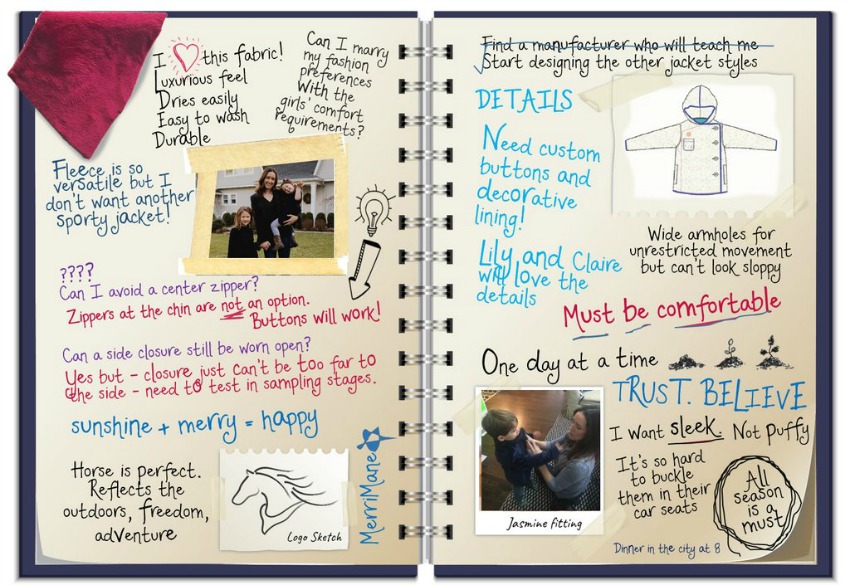 I this fabric!
Luxurious feel
Dries easily
Easy to wash
Durable
Can I marry
my fashion
preferences
With the
girls' comfort
requirements?
Fleece is so
versatile but I
don't want another
sporty jacket!
????
Can I avoid a center zipper?
Zippers at the chin are not an option.
Buttons will work!
Can a side closure still be worn open?
Yes but - closure just can't be too far to
the side - need to test in sampling stages.
sunshine + merry = happy
Horse is perfect.
Reflects the
outdoors, freedom,
adventure
Logo Sketch
MerriMane
Find a manufacturer who will teach me
Start designing the other jacket styles
DETAILS
Need custom
buttons and
decorative
lining!
Lily and Claire
will love the
details
Wide armholes for
unrestricted movement
but can't look sloppy
Must be comfortable
One day at a time
TRUST. BELIEVE
I want sleek. Not puffy
It's so hard
to buckle
them in their
car seats
All
season
is a
must
Jasmine fitting
Dinner in the city at 8